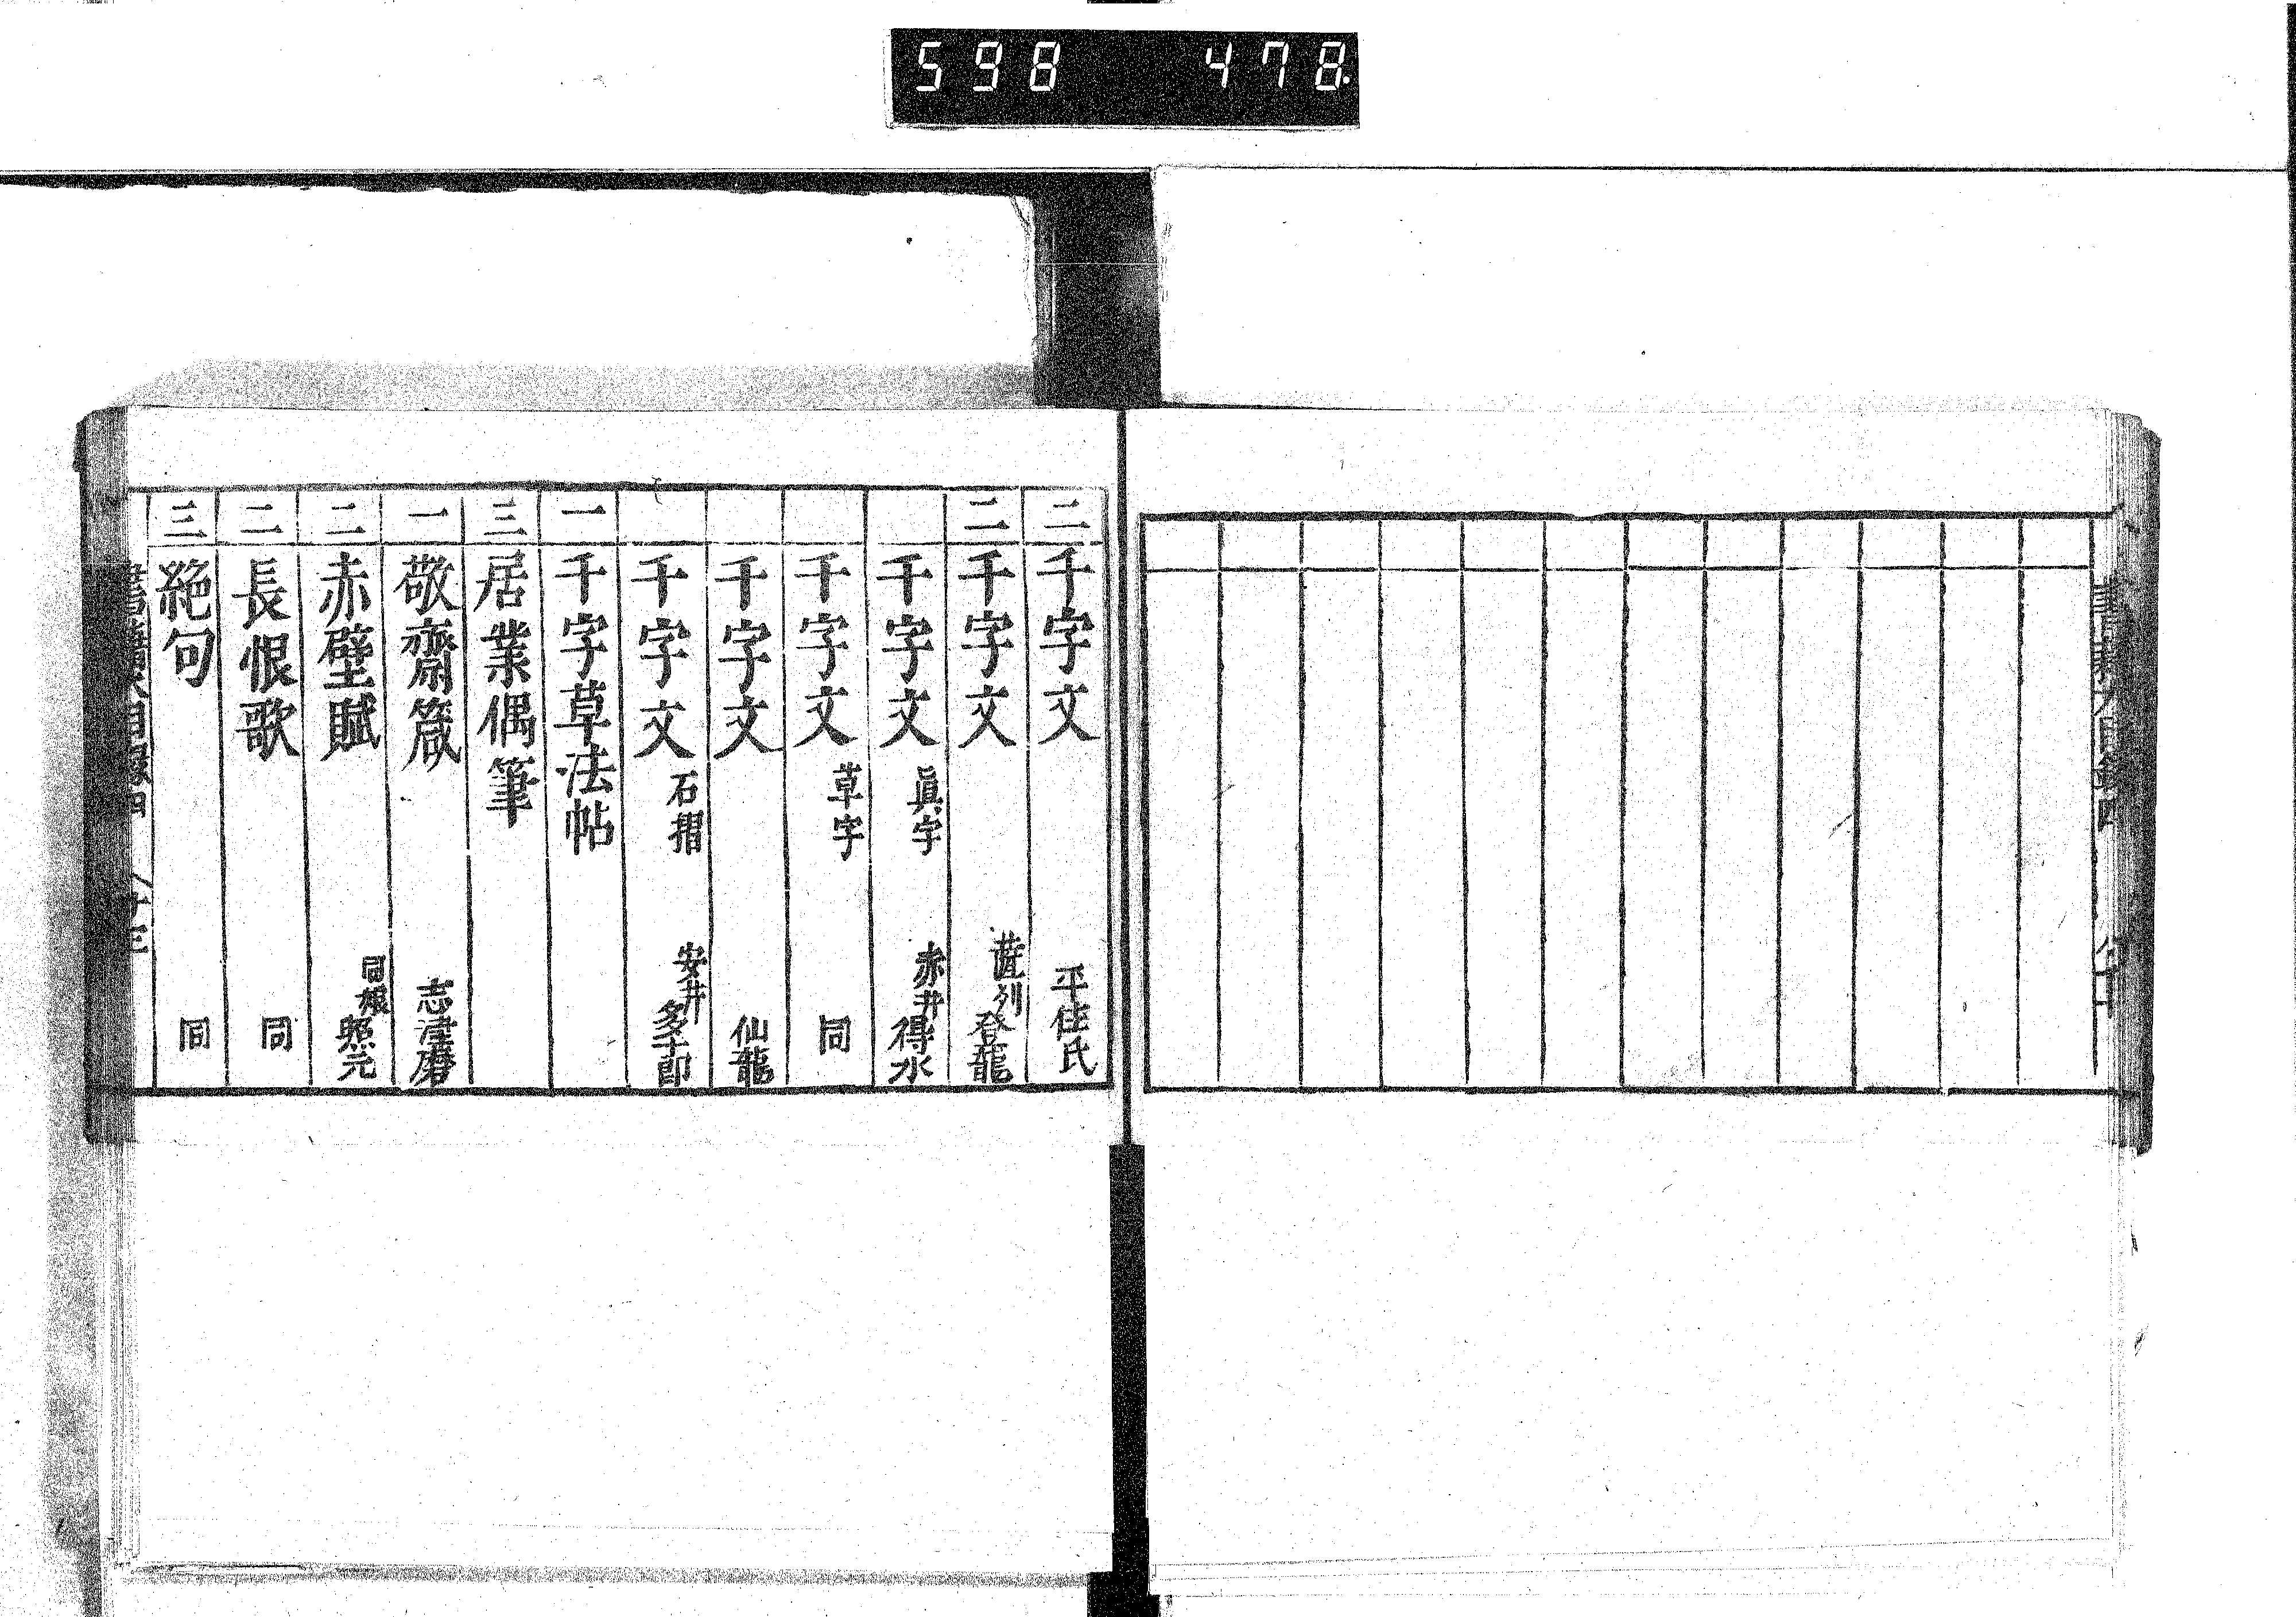 598 478.
二 千字文 平住氏
二 千字文 登龍
千字文 眞字 赤井得水
千字文 草字 同
千字文 仙龍
千字文 石摺 安井
一 千字草法帖
三 居業偶筆
一 敬齋箴 志津磨
二 赤壁賦 照元
二 長恨歌 同
三 絶句 同